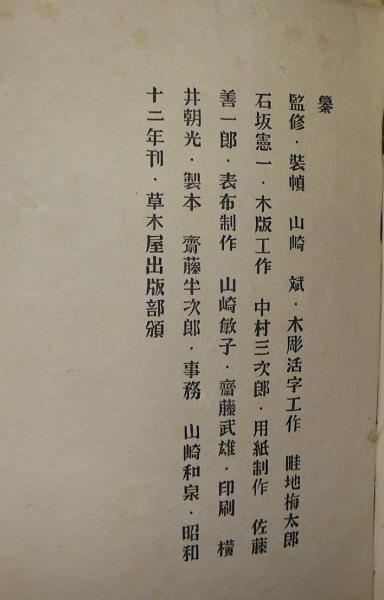 纂
監修・裝幀 山崎 斌・木彫活字工作 畦地梅太郎
石坂憲一・木版工作 中村三次郎・用紙制作 佐藤
善一郎・表布制作 山崎敏子・齋藤武雄・印刷 横
井朝光・製本 齋藤半次郎・事務 山崎和泉・昭和
十二年刊・草木屋出版部頒